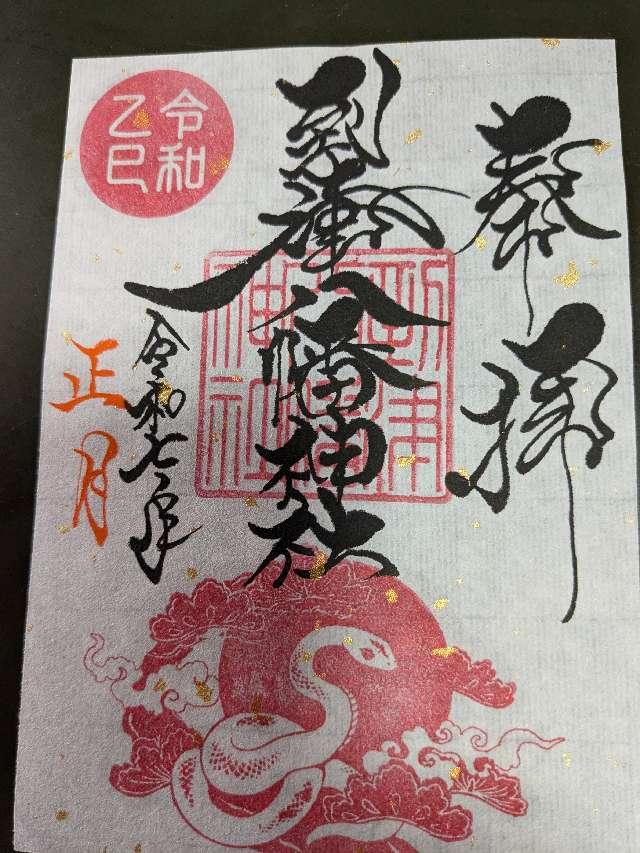 奉拝
到津八幡神社
令和七年
正月
令和
乙巳